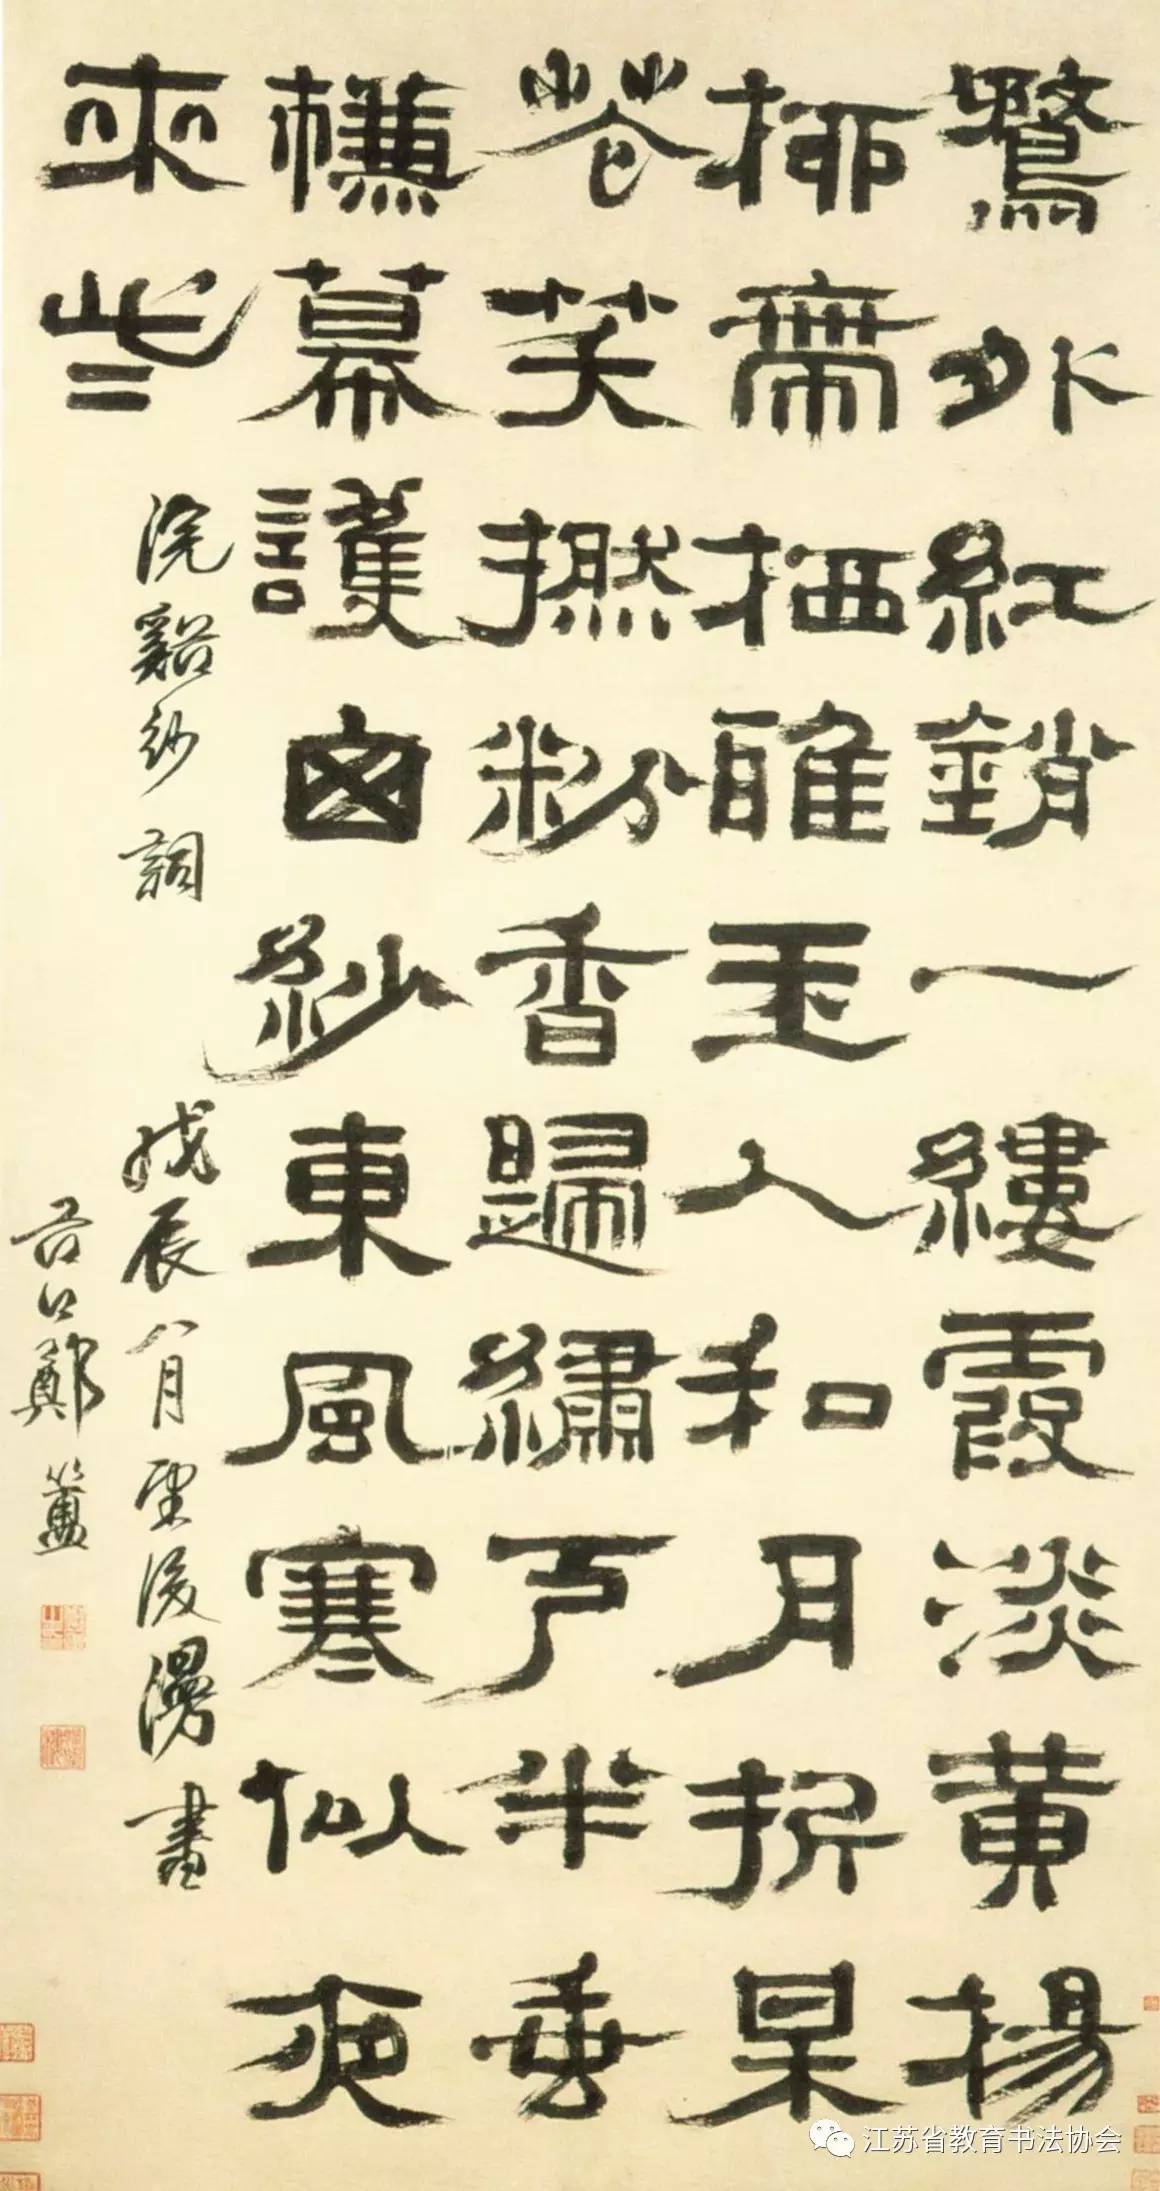 鶩外紅銷一縷霞淡黃揚
桺帶栖雅玉人和月折呆
花笑撚粉香歸繡戶半垂
槏幕護囪紗東風寒似夜
來些
浣谿紗詞 戊辰八月望後漫書
谷口鄭簠
江苏省教育书法协会